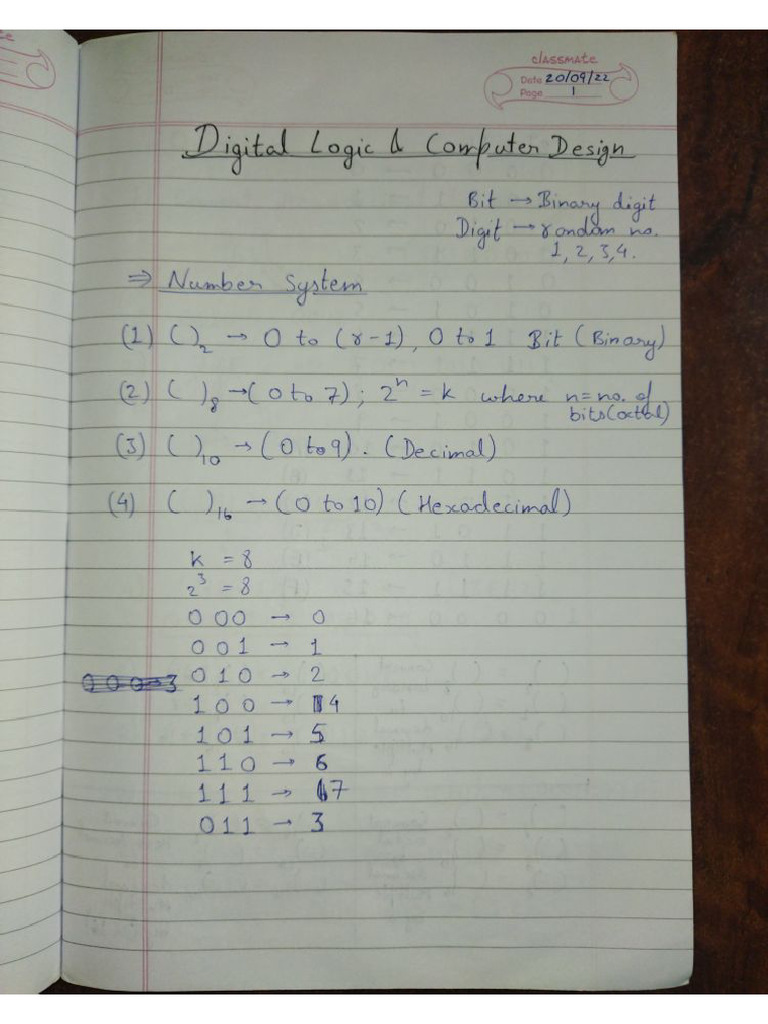 classmate
Date 20/09/22
Page 1
Digital Logic & Computer Design
Bit → Binary digit
Digit → random no.
1, 2, 3, 4.
⇒ Number System
(1) ( )₂ → 0 to (r-1), 0 to 1 Bit (Binary)
(2) ( )₈ → (0 to 7) ; 2ⁿ = k where n = no. of
bits (octal)
(3) ( )₁₀ → (0 to 9) . (Decimal)
(4) ( )₁₆ → (0 to 10) (Hexadecimal)
k = 8
2³ = 8
0 0 0 → 0
0 0 1 → 1
0 0 0 → 3
0 1 0 → 2
1 0 0 → 4
1 0 1 → 5
1 1 0 → 6
1 1 1 → 7
0 1 1 → 3